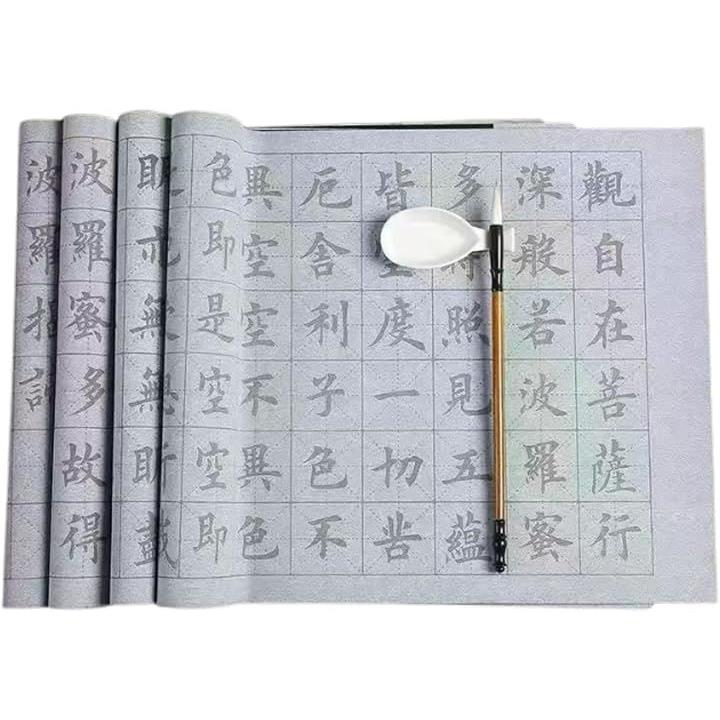 觀自在菩薩行
深般若波羅蜜
多照見五蘊
皆度一切苦
厄舍利子色不
異空空不異色
色即是空空即
亦無無盡
波羅蜜多故得
波羅